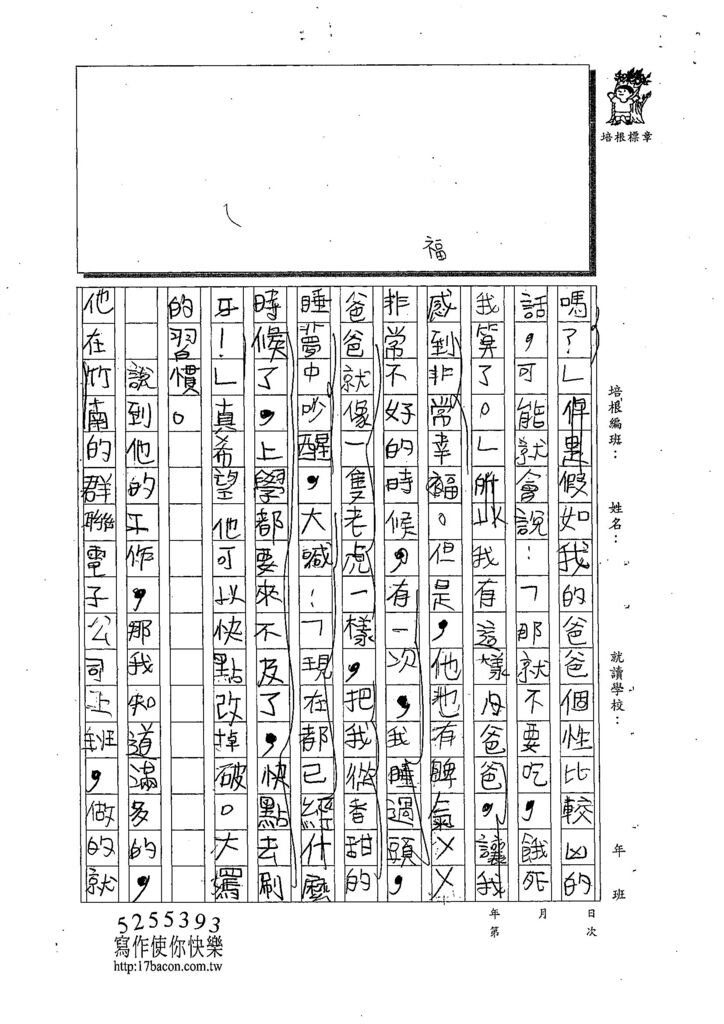 福
培根標章
嗎?」但是假如我的爸爸個性比較凶的
話,可能就會說:「那就不要吃,餓死
我算了。」所以我有這樣的爸爸,讓我
感到非常幸福。但是,他也有脾氣
非常不好的時候,有一次,我睡過頭,
爸爸就像一隻老虎一樣,把我從香甜的
睡夢中吵醒,大喊:「現在都已經什麼
時候了,上學都要來不及了,快點去刷
牙!」真希望他可以快點改掉破。大罵
的習慣。
說到他的工作,那我知道滿多的,
他在竹南的群聯電子公司上班,做的就
培根編班:
姓名:
就讀學校:
年 班
年 月 日
第 次
5255393
寫作使你快樂
http:17bacon.com.tw